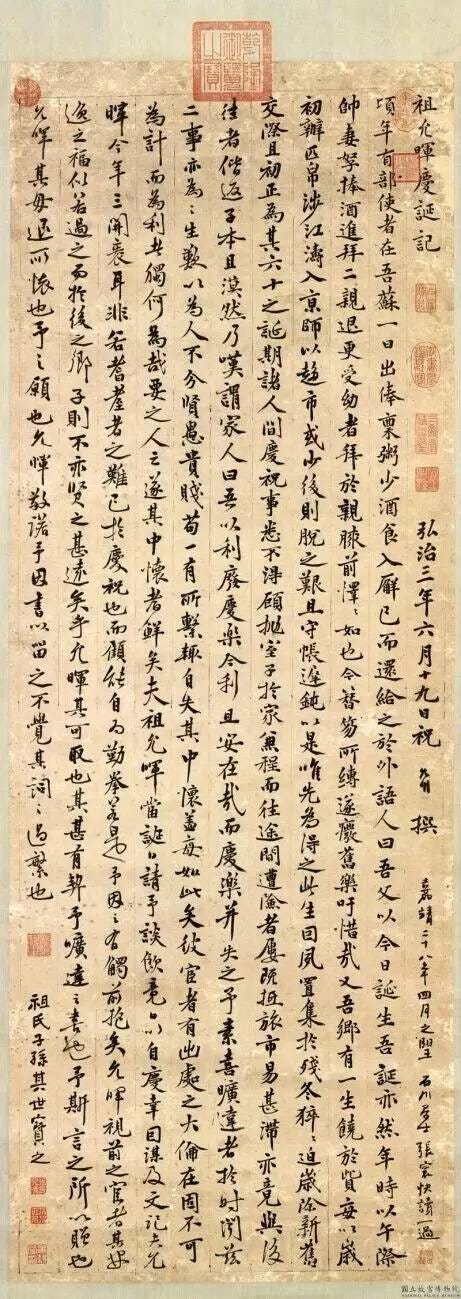 乾隆御覽之寶
祖允暉慶誕記
弘治三年六月十九日祝允明撰
嘉靖二十八年四月之望石川居士張寰快讀一過
頃年有部使者在吾蘇一日出俸稟粥少酒食入廨已而還給之於外語人曰吾父以今日誕生吾誕亦然年時以午際
帥妻孥捧酒進拜二親退更受幼者拜於親膝前懌〻如也今簪笏所縛遂癈舊樂吁惜哉又吾鄉有一生饒於貲每以歲
初辦匹帛涉江濤入京師以趨市或少後則脫之艱且守帳遲鈍以是唯先為得之此生因夙置集於殘冬猝〻迫歲除新舊
交際且初正為其六十之誕期諸人間慶祝事悉不得顧拋室子於家兼程而往途間遭澮者屢既抵旅市易甚滯亦竟與後
往者偕返子本且漠然乃嘆謂家人曰吾以利廢慶樂今利且安在哉而慶樂并失之予素喜曠達者於時閔茲
二事亦為之生歎以為人不分賢愚貴賤苟一有所繫輒自失其中懷蓋每如此矣彼宦者有出處之大倫在固不可
為計而為利者獨何為哉要之人之遂其中懷者鮮矣夫祖允暉當誕日請予談飲竟日以自慶幸因謀及文記之允
暉今年三開袠耳非若耆耋者之難已於慶祝也而顧能自為勤拳若是予因之有觸前抱矣允暉視前之宦者其安
逸之福似若過之而於後之鄉子則不亦賢之甚遠矣乎允暉其可取也其甚有契予曠達之喜也予斯言之所以贈也
允暉其毋退所懷也予之願也允暉敬諾予因書以留之不覺其詞之過繁也
祖氏子孫其世寶之
國立故宮博物院
NATIONAL PALACE MUSEUM